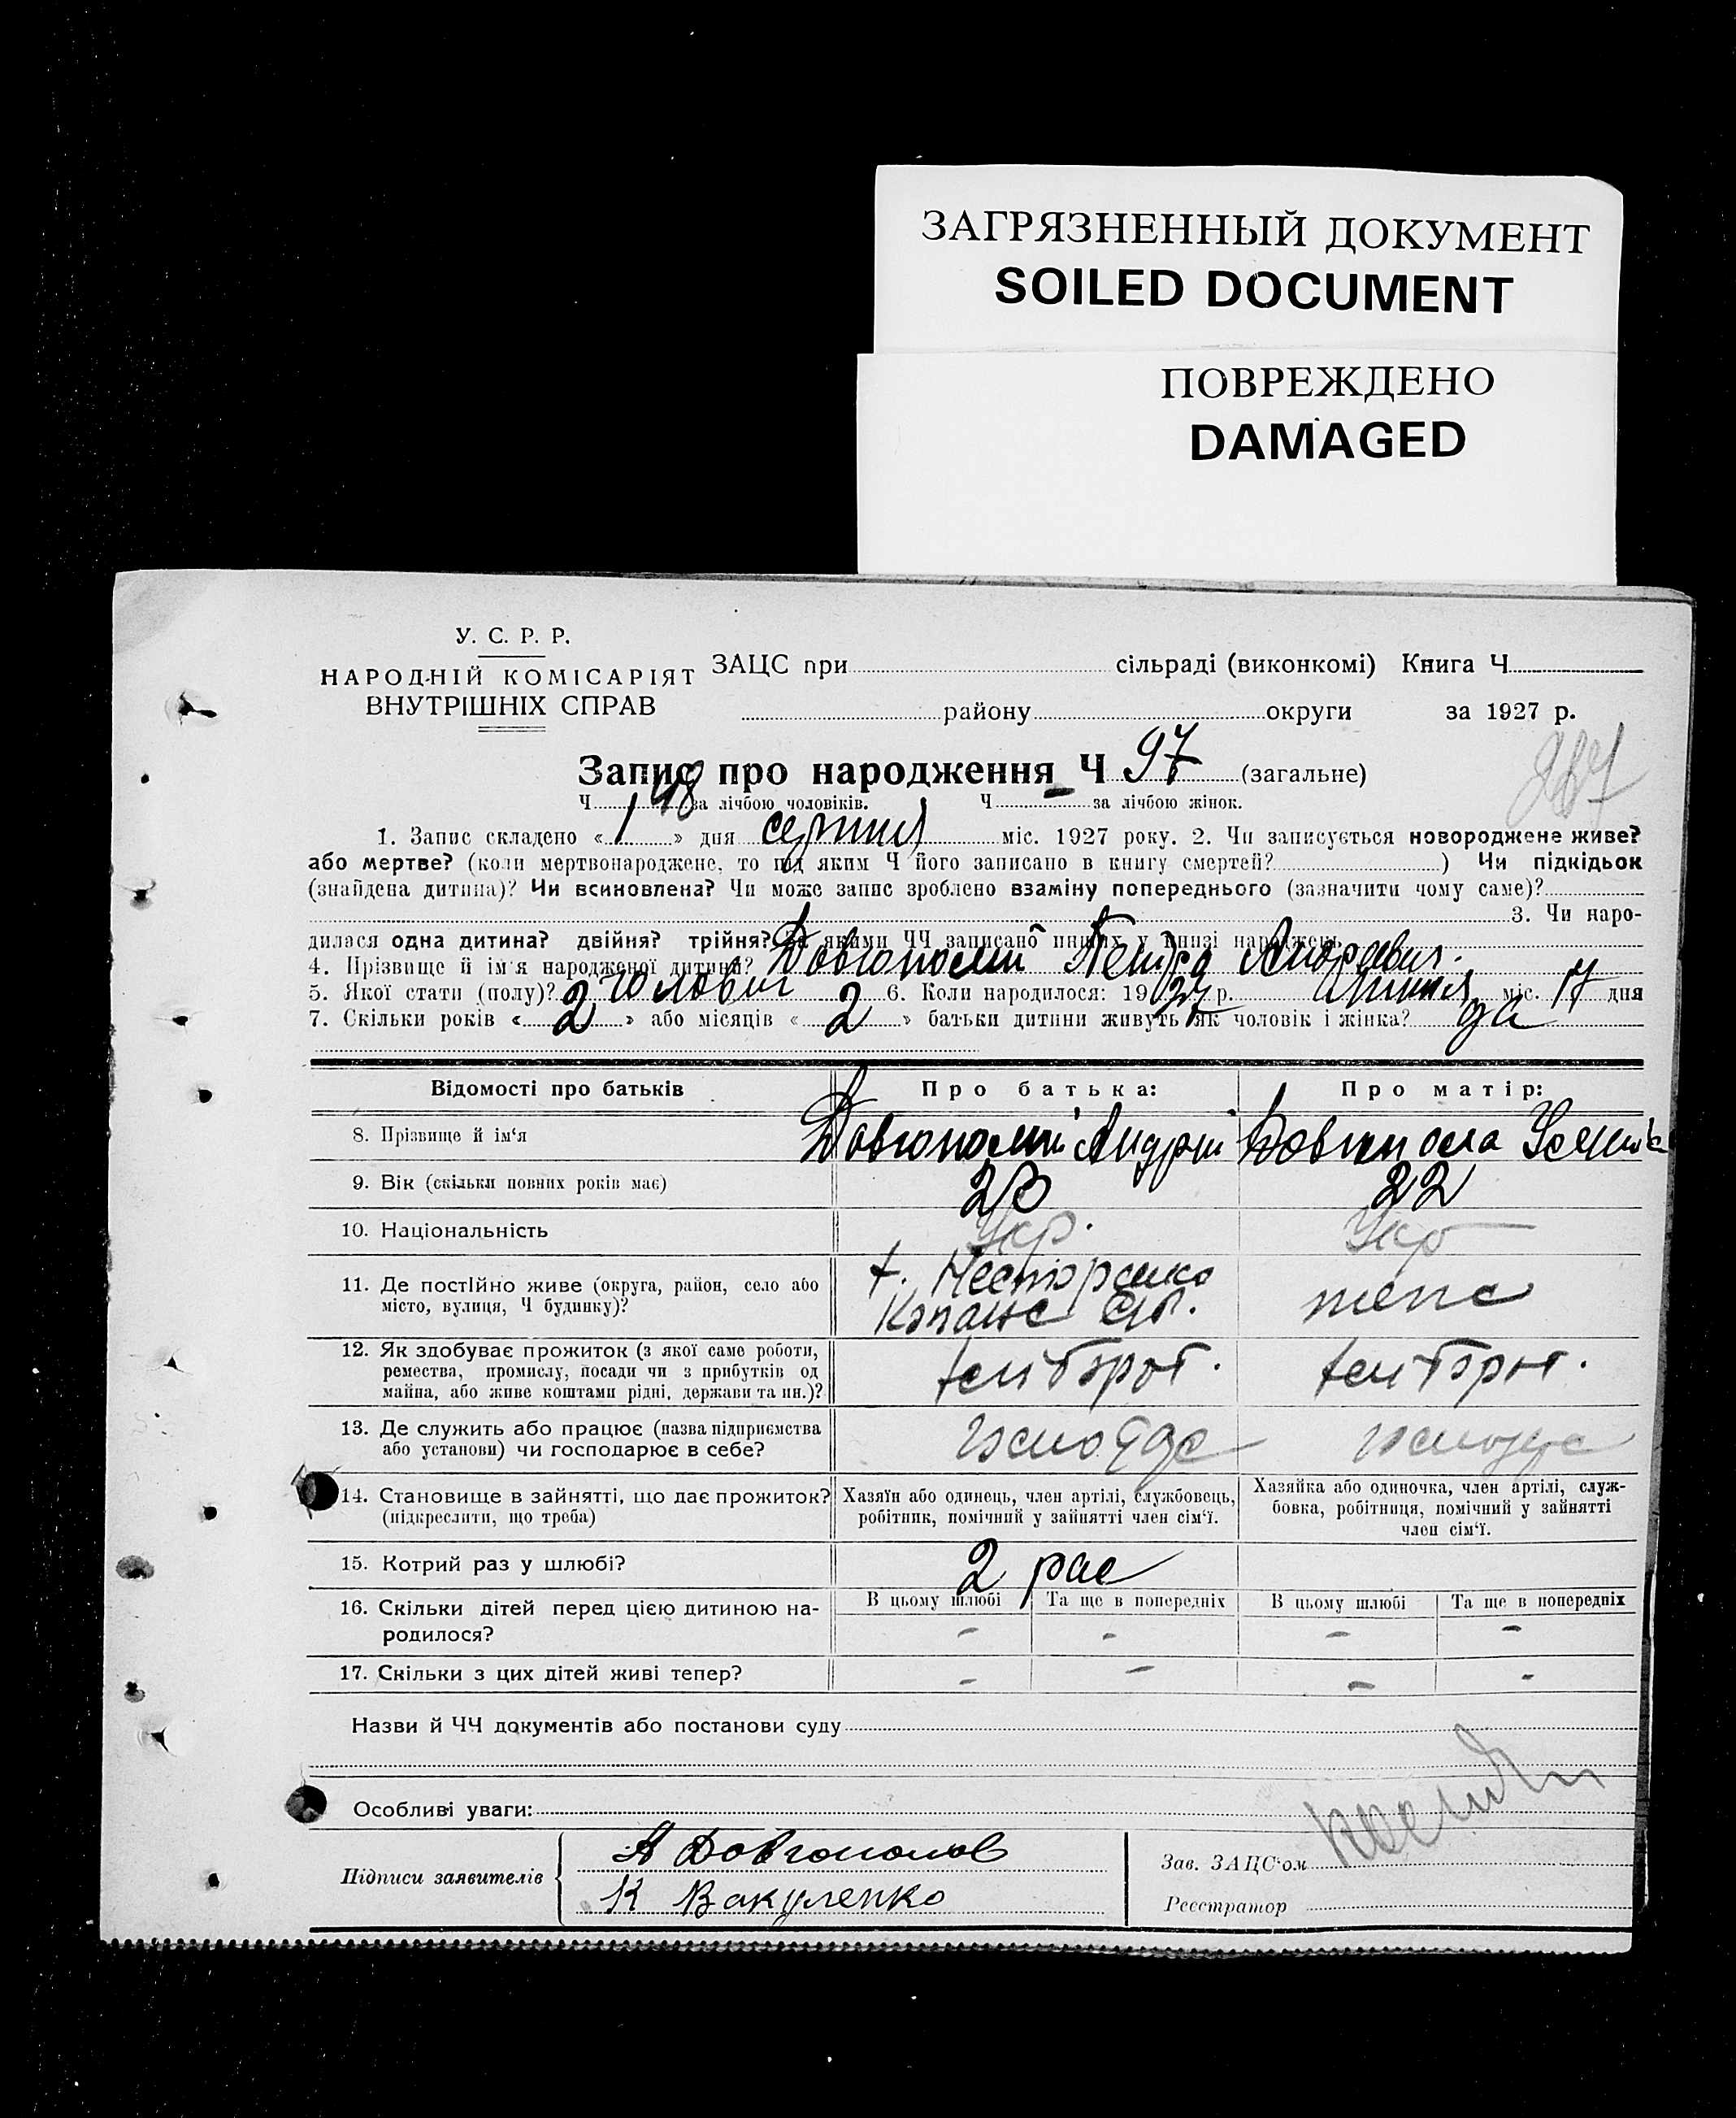 ЗАГРЯЗНЕННЫЙ ДОКУМЕНТ
SOILED DOCUMENT
ПОВРЕЖДЕНО
DAMAGED
У. С. Р. Р.
НАРОДНІЙ КОМІСАРІЯТ
ВНУТРІШНІХ СПРАВ
ЗАЦС при сільраді (виконкомі) Книга Ч.
району округи за 1927 р.
Запис про народження Ч 97 (загальне)
Ч 48 за лічбою чоловіків. Ч – за лічбою жінок.
1. Запис складено «1» дня серпня міс. 1927 року. 2. Чи записується новороджене живе?
або мертве? (коли мертвонароджене, то під яким Ч його записано в книгу смертей? ) Чи підкідьок
(знайдена дитина)? Чи всиновлена? Чи може запис зроблено взаміну попереднього (зазначити чому саме)?
3. Чи наро-
дилася одна дитина? двійня? трійня? За якими ЧЧ записано инших у книзі народжень
4. Прізвище й ім'я народженої дитини? Довгополий Андрєвич.
5. Якої стати (полу)? чоловіч 6. Коли народилося: 1927 р. міс. 17 дня
7. Скільки років «2» або місяців «2» батьки дитини живуть як чоловік і жінка? да
Відомості про батьків
Про батька:
Про матір:
8. Прізвище й ім'я
Довгополий Андрій
Довгопола
9. Вік (скільки повних років має)
23
22
10. Національність
Укр.
Укр
11. Де постійно живе (округа, район, село або
місто, вулиця, Ч будинку)?
х. Несторенко
12. Як здобуває прожиток (з якої саме роботи,
ремества, промислу, посади чи з прибутків од
майна, або живе коштами рідні, держави та ин.)?
13. Де служить або працює (назва підприємства
або установи) чи господарює в себе?
14. Становище в зайнятті, що дає прожиток?
(підкреслити, що треба)
Хазяїн або одинець, член артілі, службовець,
робітник, помічний у зайнятті член сім'ї.
Хазяйка або одиночка, член артілі, служ-
бовка, робітниця, помічний у зайнятті
член сім'ї.
15. Котрий раз у шлюбі?
2 рас
16. Скільки дітей перед цією дитиною на-
родилося?
В цьому шлюбі Та ще в попередніх В цьому шлюбі Та ще в попередніх
– – – –
17. Скільки з цих дітей живі тепер?
– – – –
Назви й ЧЧ документів або постанови суду
Особливі уваги:
Підписи заявителів
А Довгополов
К Вакуленко
Зав. ЗАЦС'ом
Реєстратор